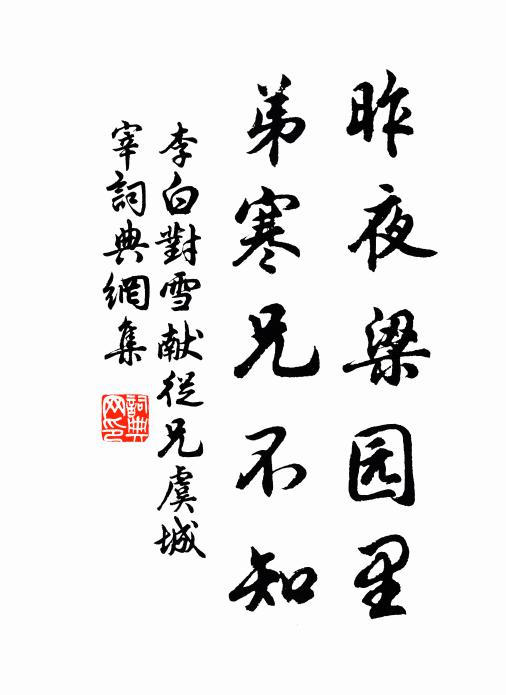 昨夜梁园里
弟寒兄不知
李白對雪献從兄虞城
宰詞典網集
詞典
网印